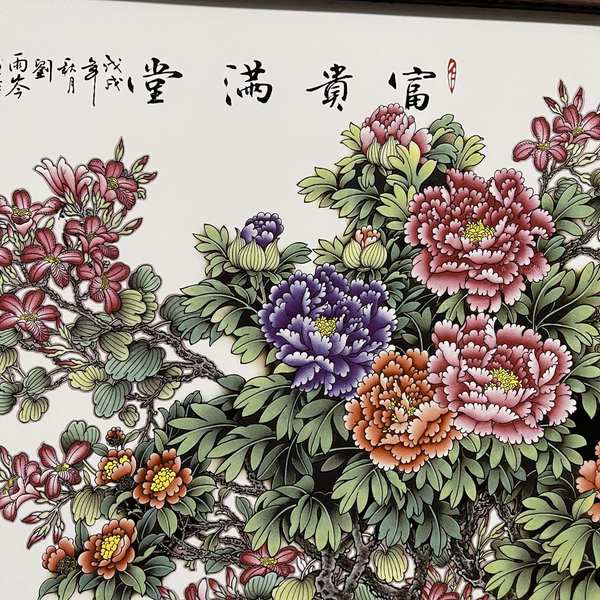 富貴滿堂
戊戌
年
秋月
劉
雨岑